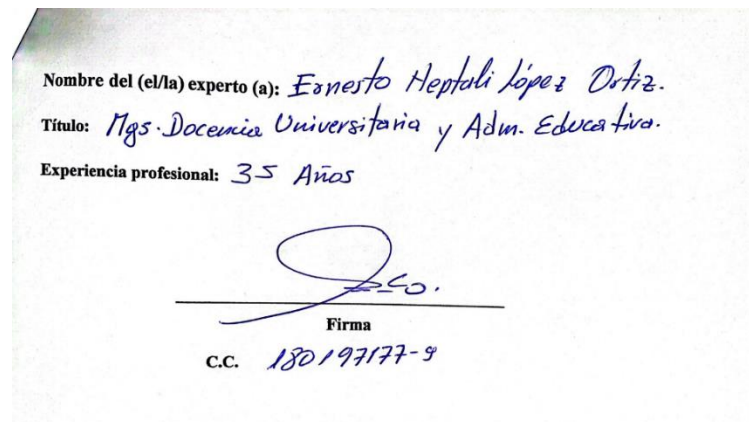 Nombre del (el/la) experto (a): Ernesto Heptali López Ortiz.
Título: Mgs. Docencia Universitaria y Adm. Educativa.
Experiencia profesional: 35 Años
Firma
C.C. 180197177-9